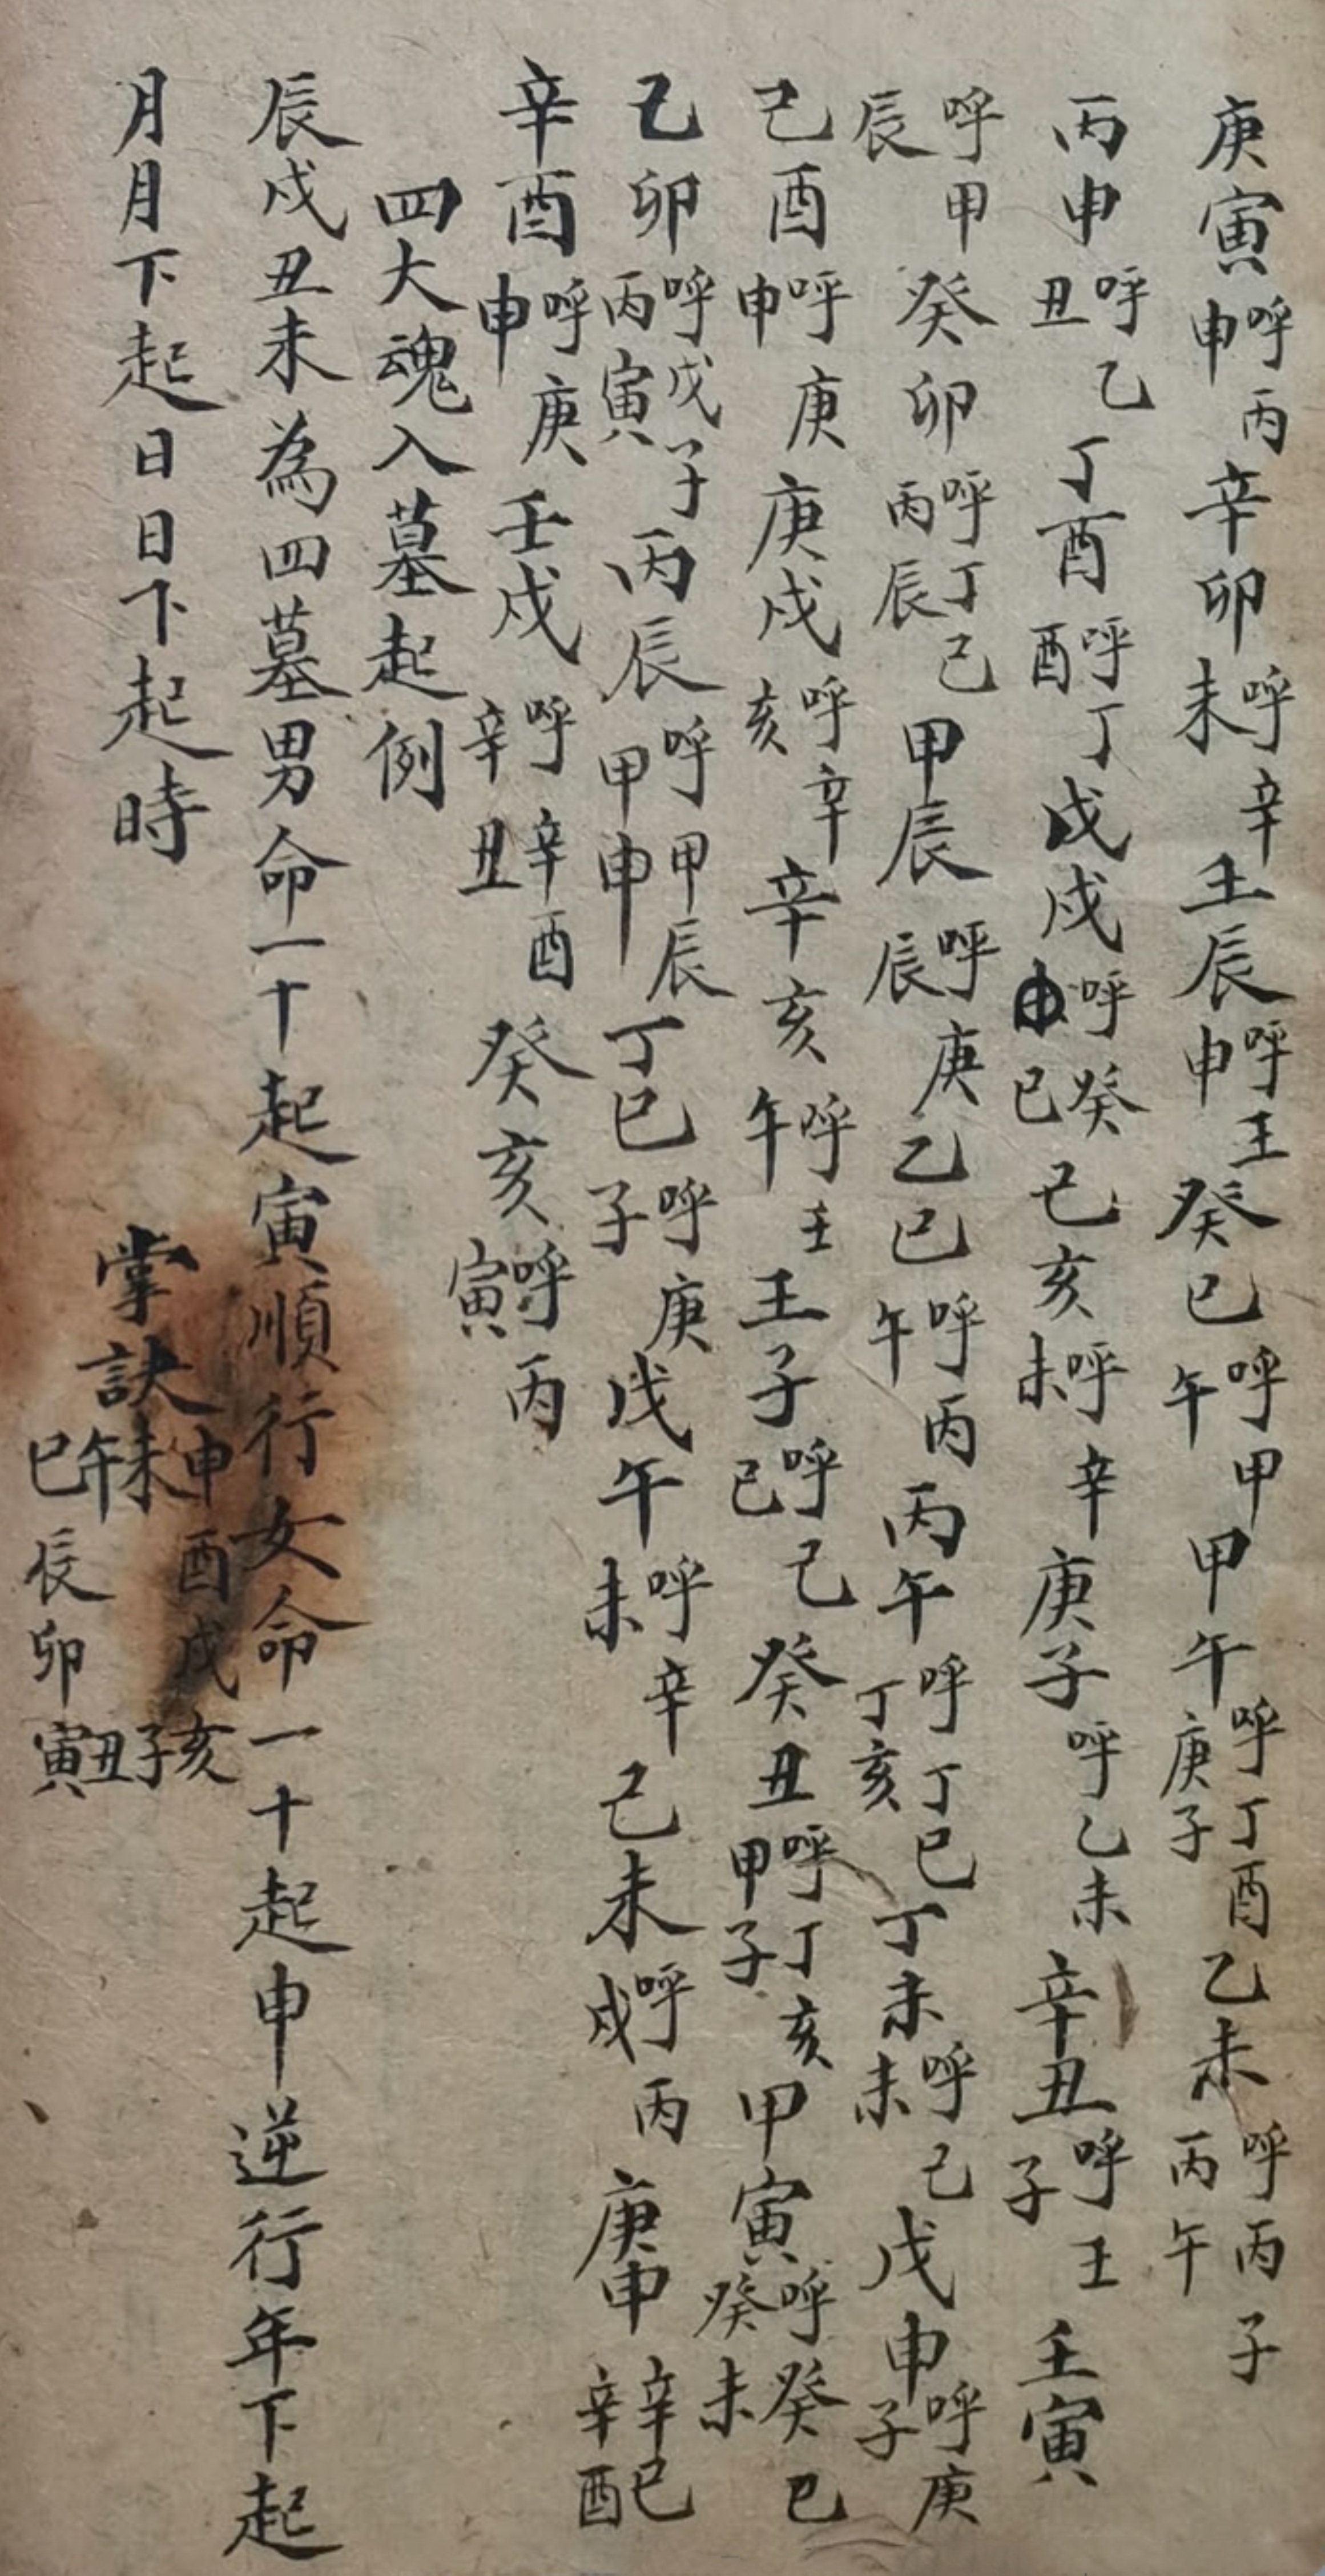 庚寅呼丙申辛卯呼辛未壬辰呼王申癸巳呼甲午甲午呼丁酉庚子乙未呼丙子丙午
丙申呼乙丑丁酉呼丁酉戊戌呼癸巳己亥呼辛未庚子呼乙未辛丑呼王子壬寅
呼甲辰癸卯呼丁己丙辰甲辰呼庚辰乙巳呼丙午丙午呼丁巳丁亥丁未呼己未戊申呼庚子
己酉呼庚申庚戌呼辛亥辛亥呼壬午王子呼己巳癸丑呼丁亥甲子甲寅呼癸巳癸未
乙卯呼戊子丙寅丙辰呼甲辰甲申丁巳呼庚子戊午呼辛未己未呼丙戌庚申辛巳辛酉
辛酉呼庚申壬戌呼辛酉辛丑癸亥呼丙寅
四大魂入墓起例
辰戌丑未為四墓男命一十起寅順行女命一十起申逆行年下起
月月下起日日下起時
掌訣
巳午未申
辰酉
卯戌
寅丑子亥